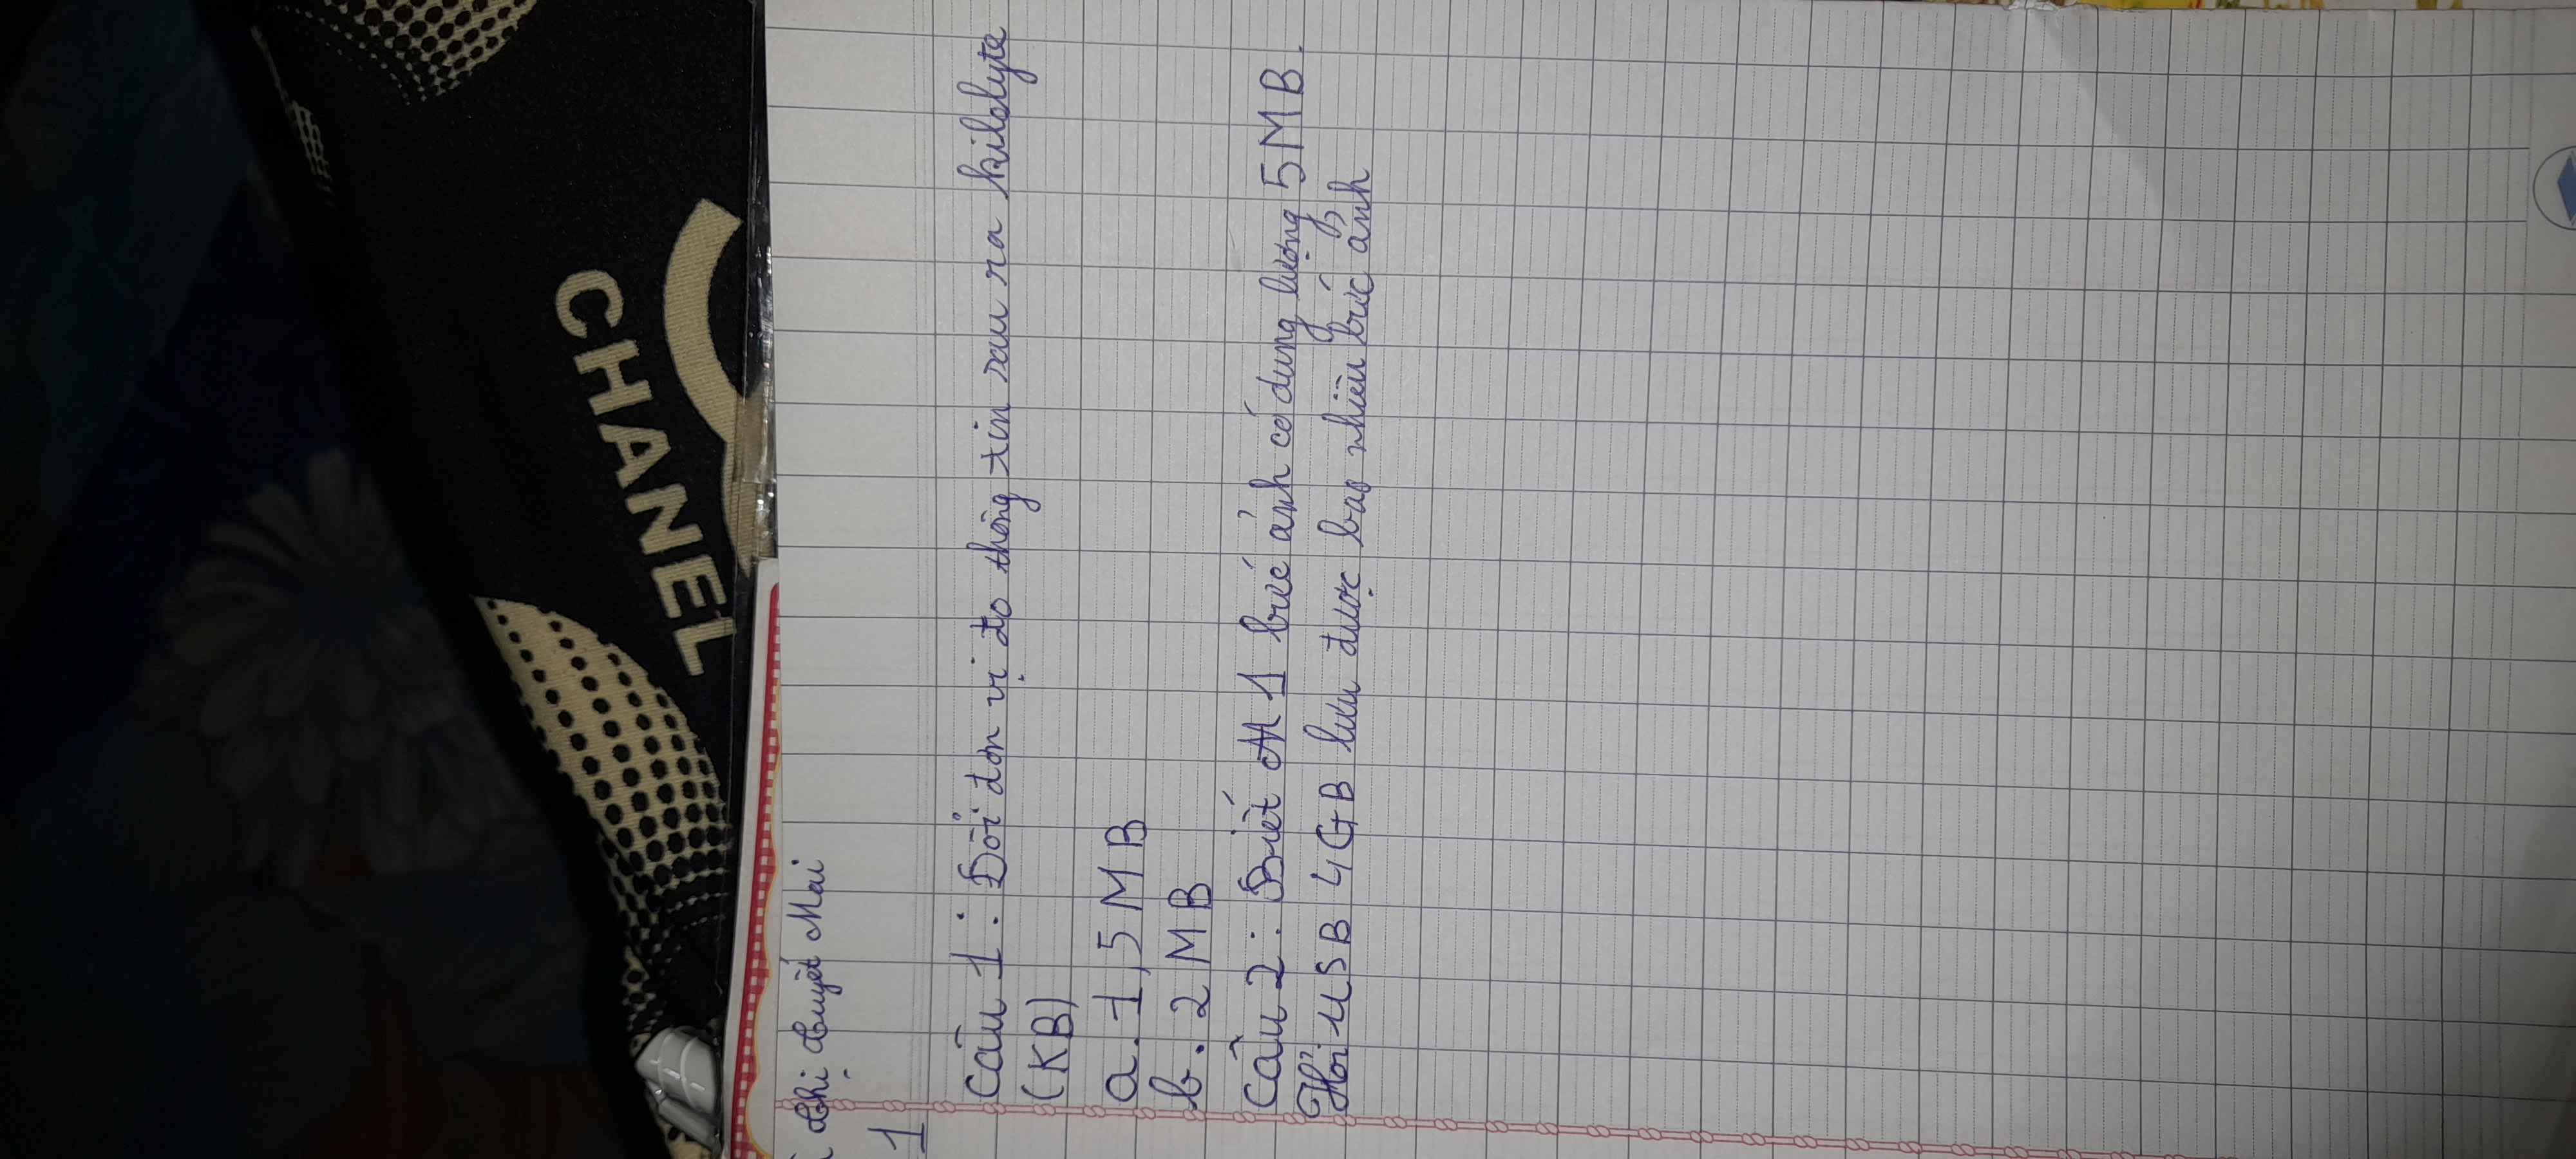 CHANEL
Thị Tuyết Mai
1
Câu 1: Đổi đơn vị đo thông tin sau ra kilobyte
(KB)
a. 1,5 MB
b. 2 MB
Câu 2: Biết 1 bức ảnh có dung lượng 5MB.
Hỏi USB 4GB lưu được bao nhiêu bức ảnh